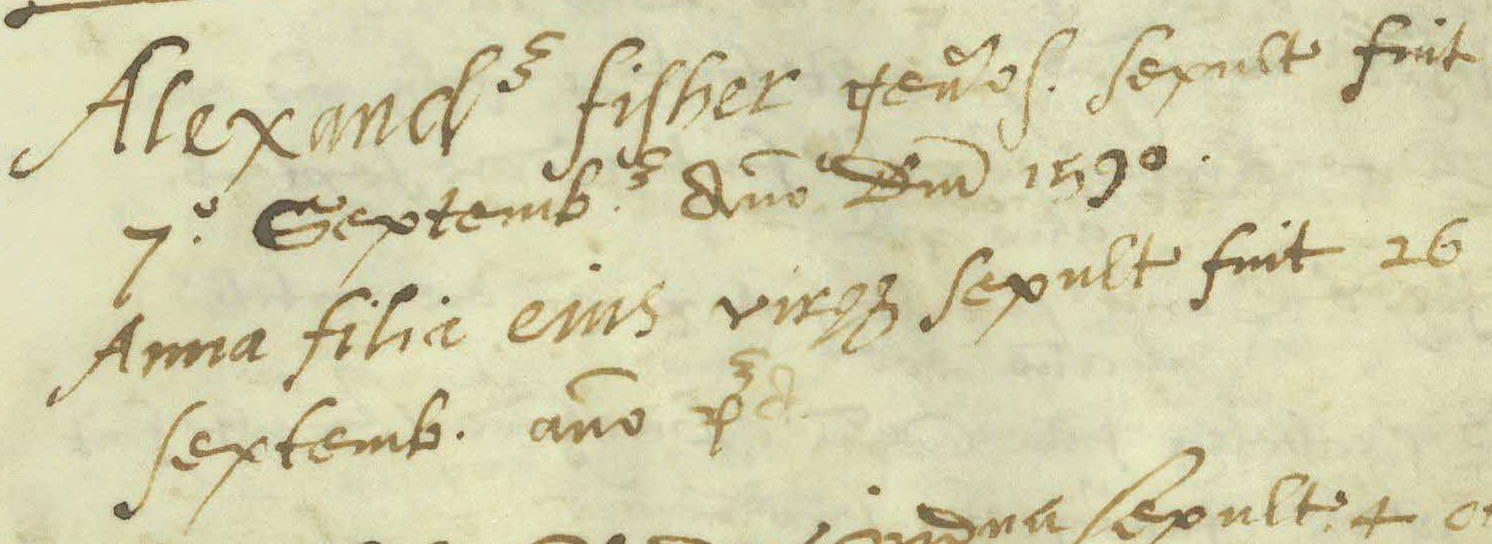 Alexandꝫ fisher geños. sepult fuit
7.º Septemb.ꝫ Año Dñi 1590.
Anna filia eius virgo sepult fuit 26
septemb. año pꝫd.
vidua sepult. 4